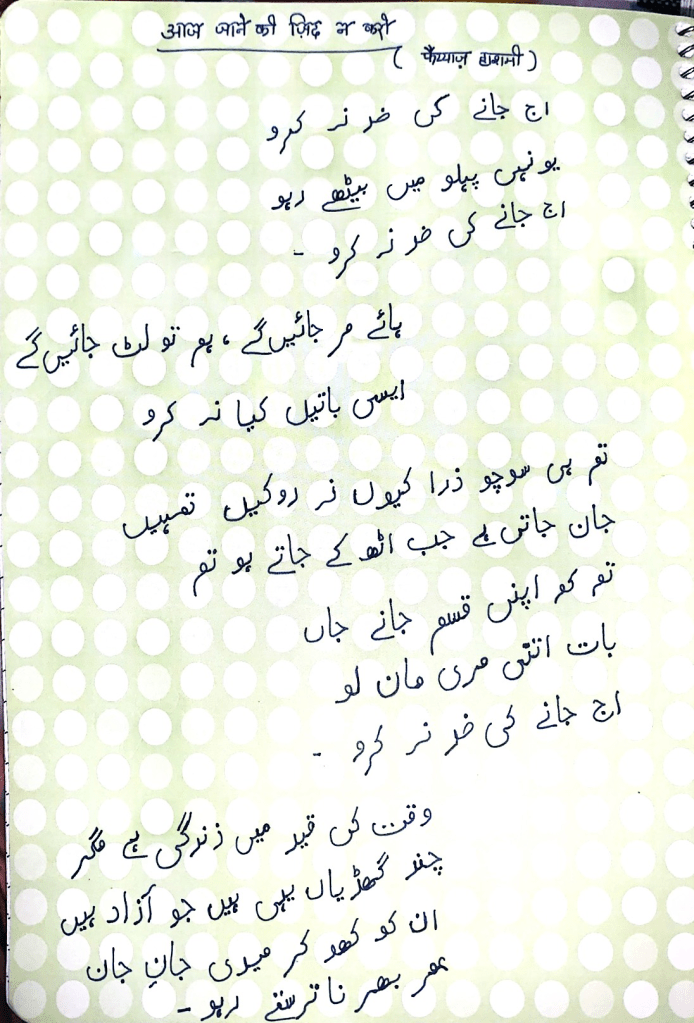 आज जाने की ज़िद न करो
( फ़ैय्याज़ हाशमी )
اج جانے کی ضد نہ کرو
یونہی پہلو میں بیٹھے رہو
اج جانے کی ضد نہ کرو -
ہائے مر جائیں گے ، ہم تو لٹ جائیں گے
ایسی باتیں کیا نہ کرو
تم ہی سوچو ذرا کیوں نہ روکیں تمہیں
جان جاتی ہے جب اٹھ کے جاتے ہو تم
تم کو اپنی قسم جانے جاں
بات اتنی مری مان لو
اج جانے کی ضد نہ کرو -
وقت کی قید میں زندگی ہے مگر
چند گھڑیاں یہی ہیں جو آزاد ہیں
ان کو کھو کر میری جانِ جان
عمر بھر نا ترستے رہو -